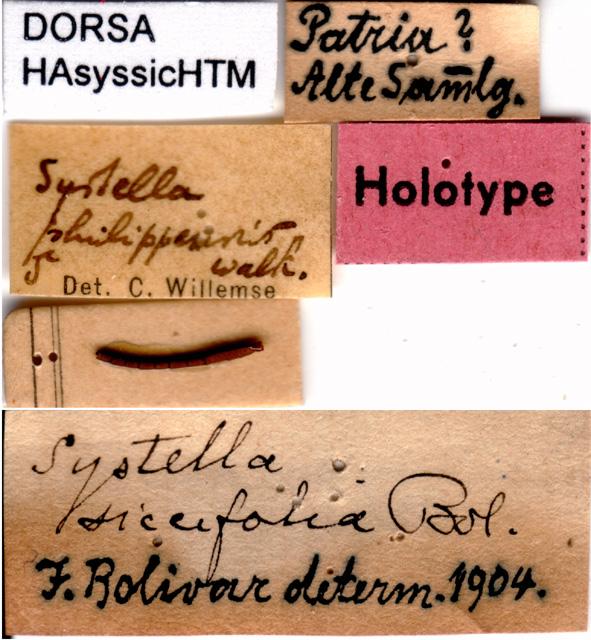 DORSA
HAsyssicHTM
Patria?
Alte Sam̅lg.
Systella
philippensis
walk.
Det. C. Willemse
Holotype
Systella
siccifolia Bol.
I. Bolivar determ. 1904.